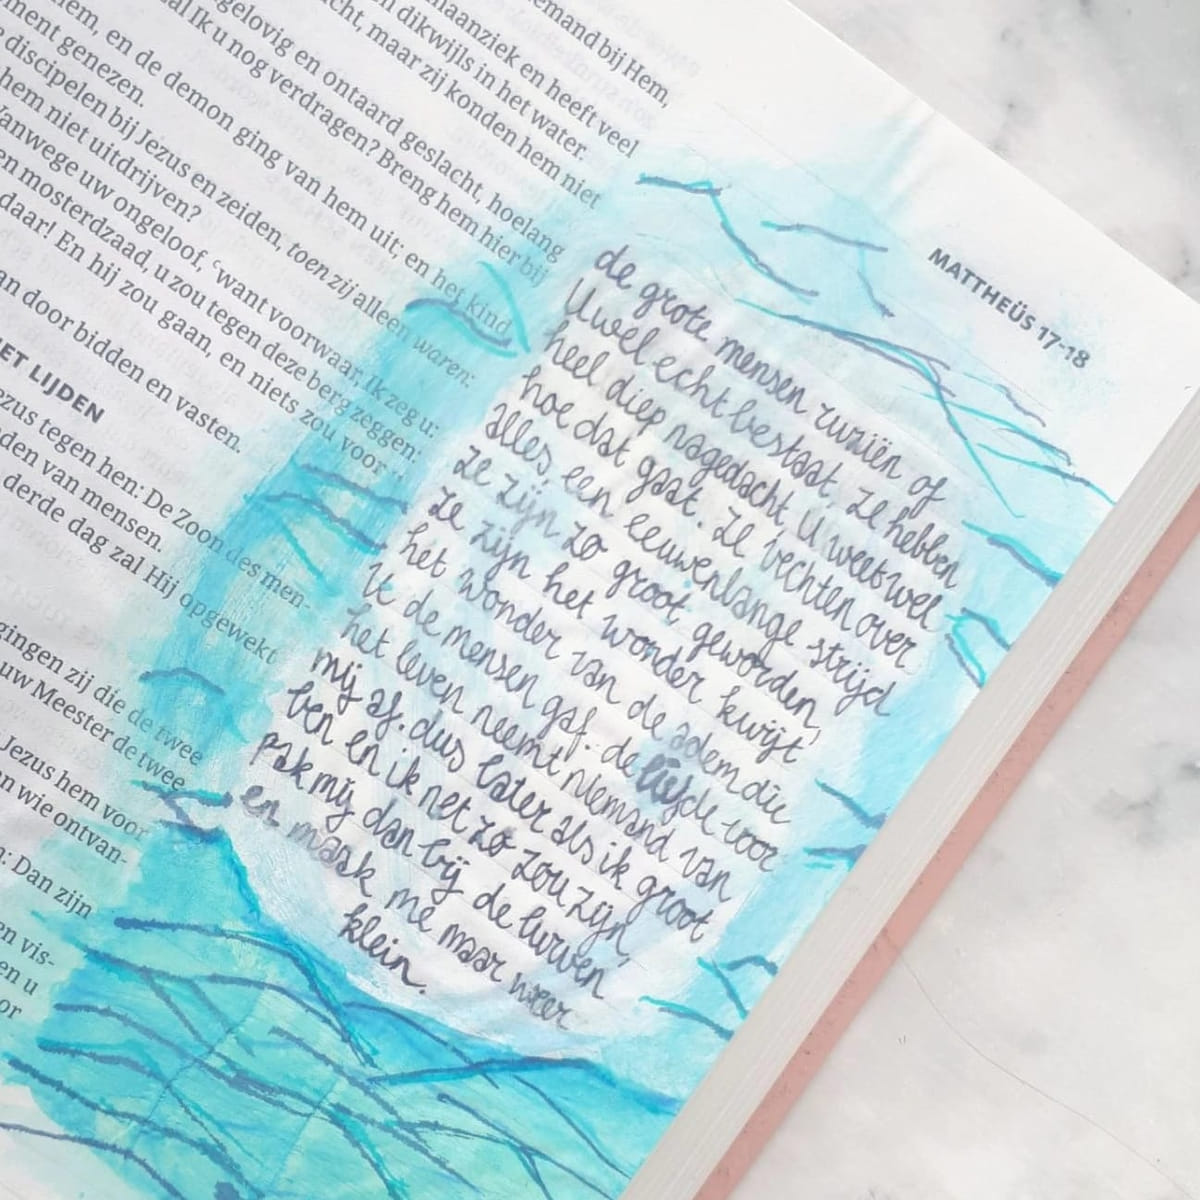 emand bij Hem,
maanziek en heeft veel
n dikwijls in het water.
cht, maar zij konden hem niet
gelovig en ontaard geslacht, hoelang
al Ik u nog verdragen? Breng hem hier bij
em, en de demon ging van hem uit; en het kind
ment genezen.
discipelen bij Jezus en zeiden, toen zij alleen waren:
hem niet uitdrijven?
Vanwege uw ongeloof, want voorwaar, Ik zeg u:
en mosterdzaad, u zou tegen deze berg zeggen:
daar! En hij zou gaan, en niets zou voor
an door bidden en vasten.
ET LIJDEN
zus tegen hen: De Zoon des men-
den van mensen.
derde dag zal Hij opgewekt
gingen zij die de twee
uw Meester de twee
Jezus hem voor
n wie ontvan-
n: Dan zijn
en vis-
en u
or
MATTHEÜS 17-18
de grote mensen ruziën of
U wel echt bestaat. ze hebben
heel diep nagedacht, U weet wel
hoe dat gaat. Ze vechten over
alles, een eeuwenlange strijd
ze zijn zo groot geworden,
ze zijn het wonder kwijt
het wonder van de adem die
U de mensen gaf. de liefde voor
het leven neemt niemand van
mij af. dus later als ik groot
ben en ik net zo zou zijn,
pak mij dan bij de lurven
en maak me maar weer
klein.